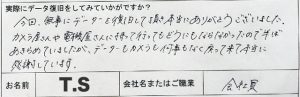 実際にデータ復旧をしてみていかがですか?
今回、無事にデーターを復旧して頂き本当にありがとうございました。
カメラ屋さんや電機屋さんに持って行ってもどうにもならなかったので半ば
あきらめていましたが、データーもカメラも何事もなく戻って来て本当に
感謝しています。
お名前 T.S 会社名またはご職業 会社員